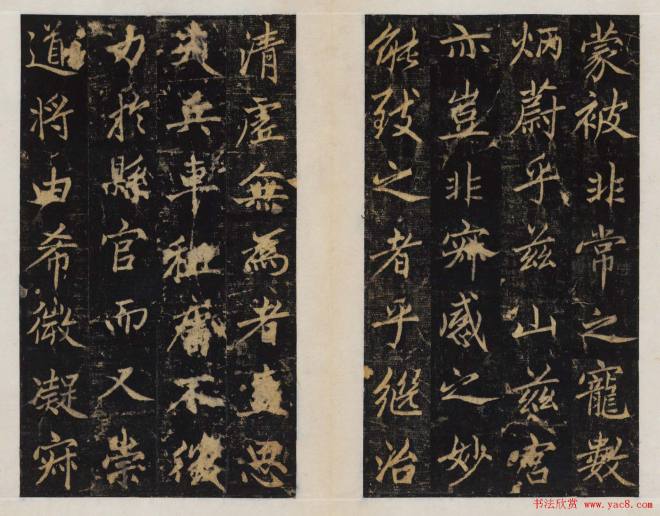 蒙被非常之寵數
炳蔚乎兹山兹宫
亦豈非寂感之妙
能致之者乎繼治
清虚無為者思
兵車不
力於縣官而又崇
道將由希微凝寂
书法欣赏 www.yac8.com